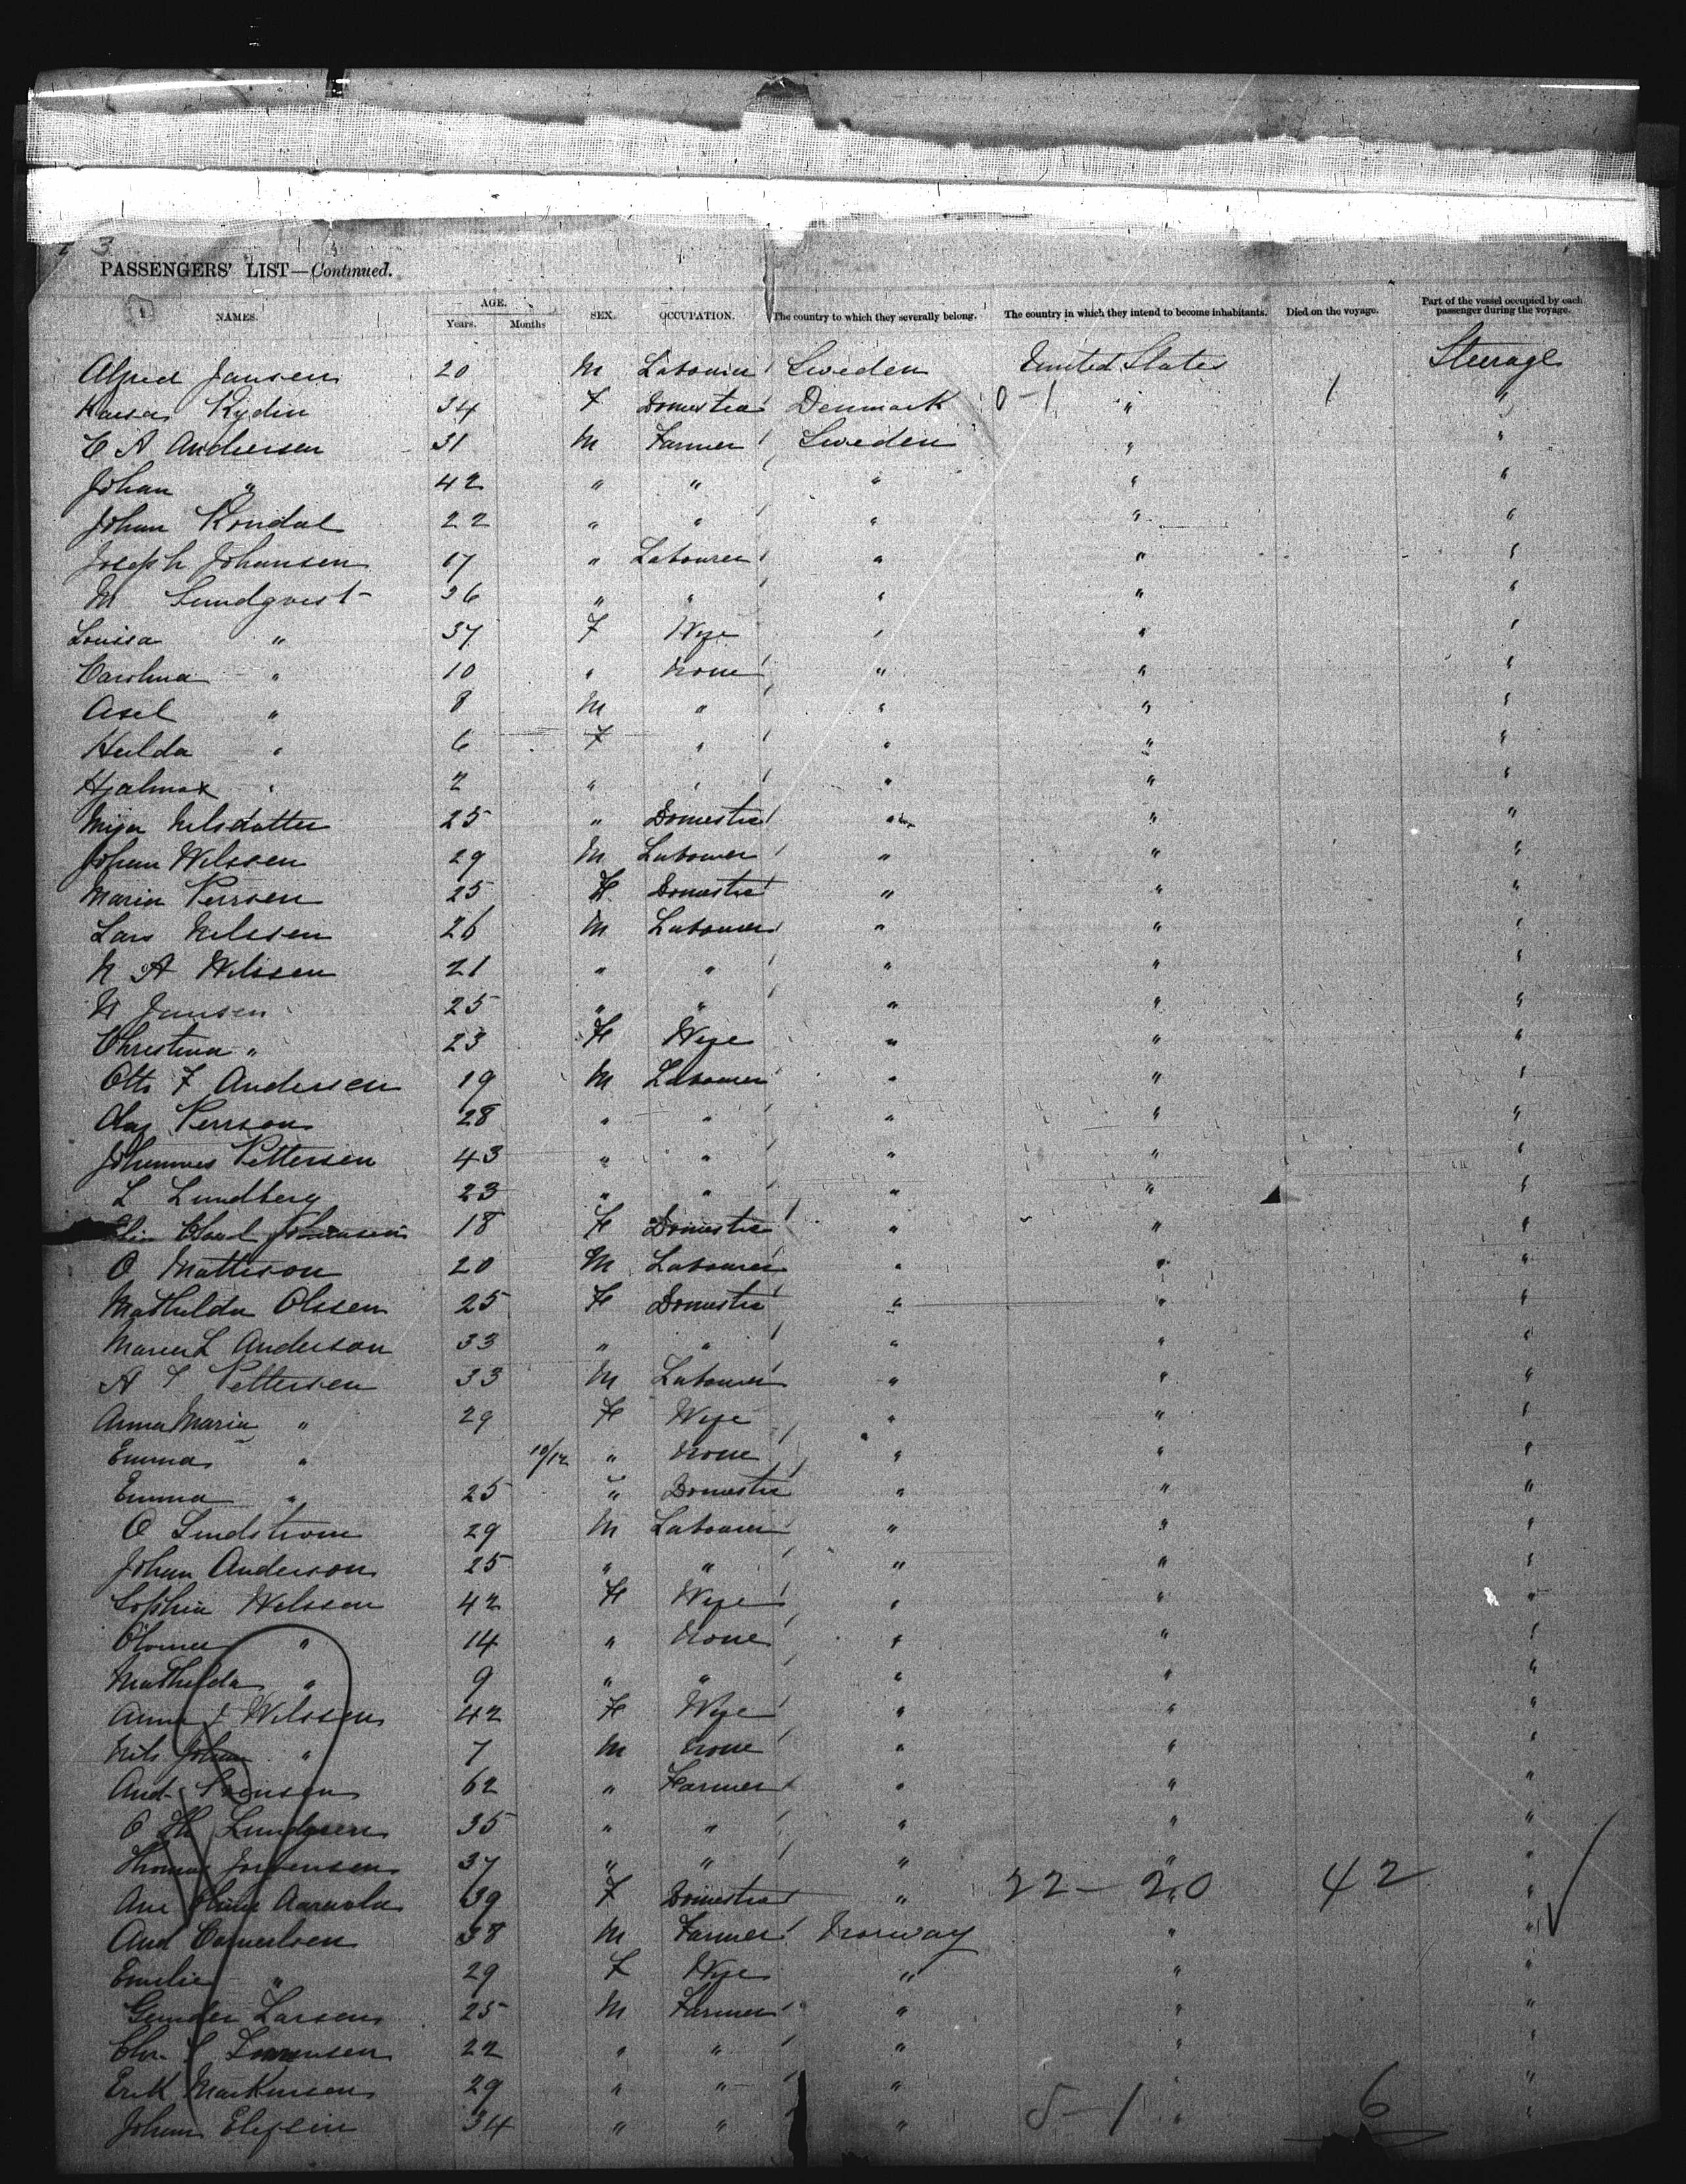 3
PASSENGERS' LIST—Continued.
1
NAMES. AGE. Years. Months SEX. OCCUPATION. The country to which they severally belong. The country in which they intend to become inhabitants. Died on the voyage. Part of the vessel occupied by each passenger during the voyage.
Alfred Jansen 20 M Labourer Sweden United States Steerage
Kaisa Rydin 34 F Domestic Denmark 0-1 " 1 "
C A Andersen 31 M Farmer Sweden " "
Johan " 42 " " " " "
Johan 22 " " " " "
Joseph Johansen 17 " Labourer " " "
M Lundqvist 36 " " " " "
Louisa " 37 F Wife " " "
Carolina " 10 " None " " "
Axel " 8 M " " " "
Hulda " 6 F " " " "
Hjalmar " 2 " " " " "
Nilsdotter 25 " Domestic " " "
Johan Nilssen 29 M Labourer " " "
Maria Perssen 25 F Domestic " " "
Lars Nelssen 26 M Labourer " " "
N A Nilssen 21 " " " " "
N Jansen 25 " " " " "
Christina " 23 F Wife " " "
Otto F Andersen 19 M Labourer " " "
Olaf Persson 28 " " " " "
Johannes Pettersen 43 " " " " "
L Lundberg 23 " " " " "
Johansen 18 F Domestic " " "
O Mattison 20 M Labourer " " "
Mathilda Olssen 25 F Domestic " " "
Maria L Anderson 33 " " " " "
A Pettersen 33 M Labourer " " "
Anna Maria " 29 F Wife " " "
Emma " 10/12 " None " " "
Emma " 25 " Domestic " " "
O Lindstrom 29 M Labourer " " "
Johan Anderson 25 " " " " "
Sophia Nelssen 42 F Wife " " "
" 14 " None " " "
Mathilda " 9 " " " " "
Anna Nilssen 42 F Wife " " "
Nils Johan " 7 M None " " "
And Svensen 62 " Farmer " " "
O Lundgren 35 " " " " "
Thomas Jorgensen 37 " " " " "
Ane 39 F Domestic " 22-20 " 42 "
And 38 M Farmer Norway " "
Emelie " 29 F Wife " " "
Larsen 25 M Farmer " " "
Chr. 22 " " " " "
Erik Markussen 29 " " " " "
Johan 34 " " " 5-1 " 6 "